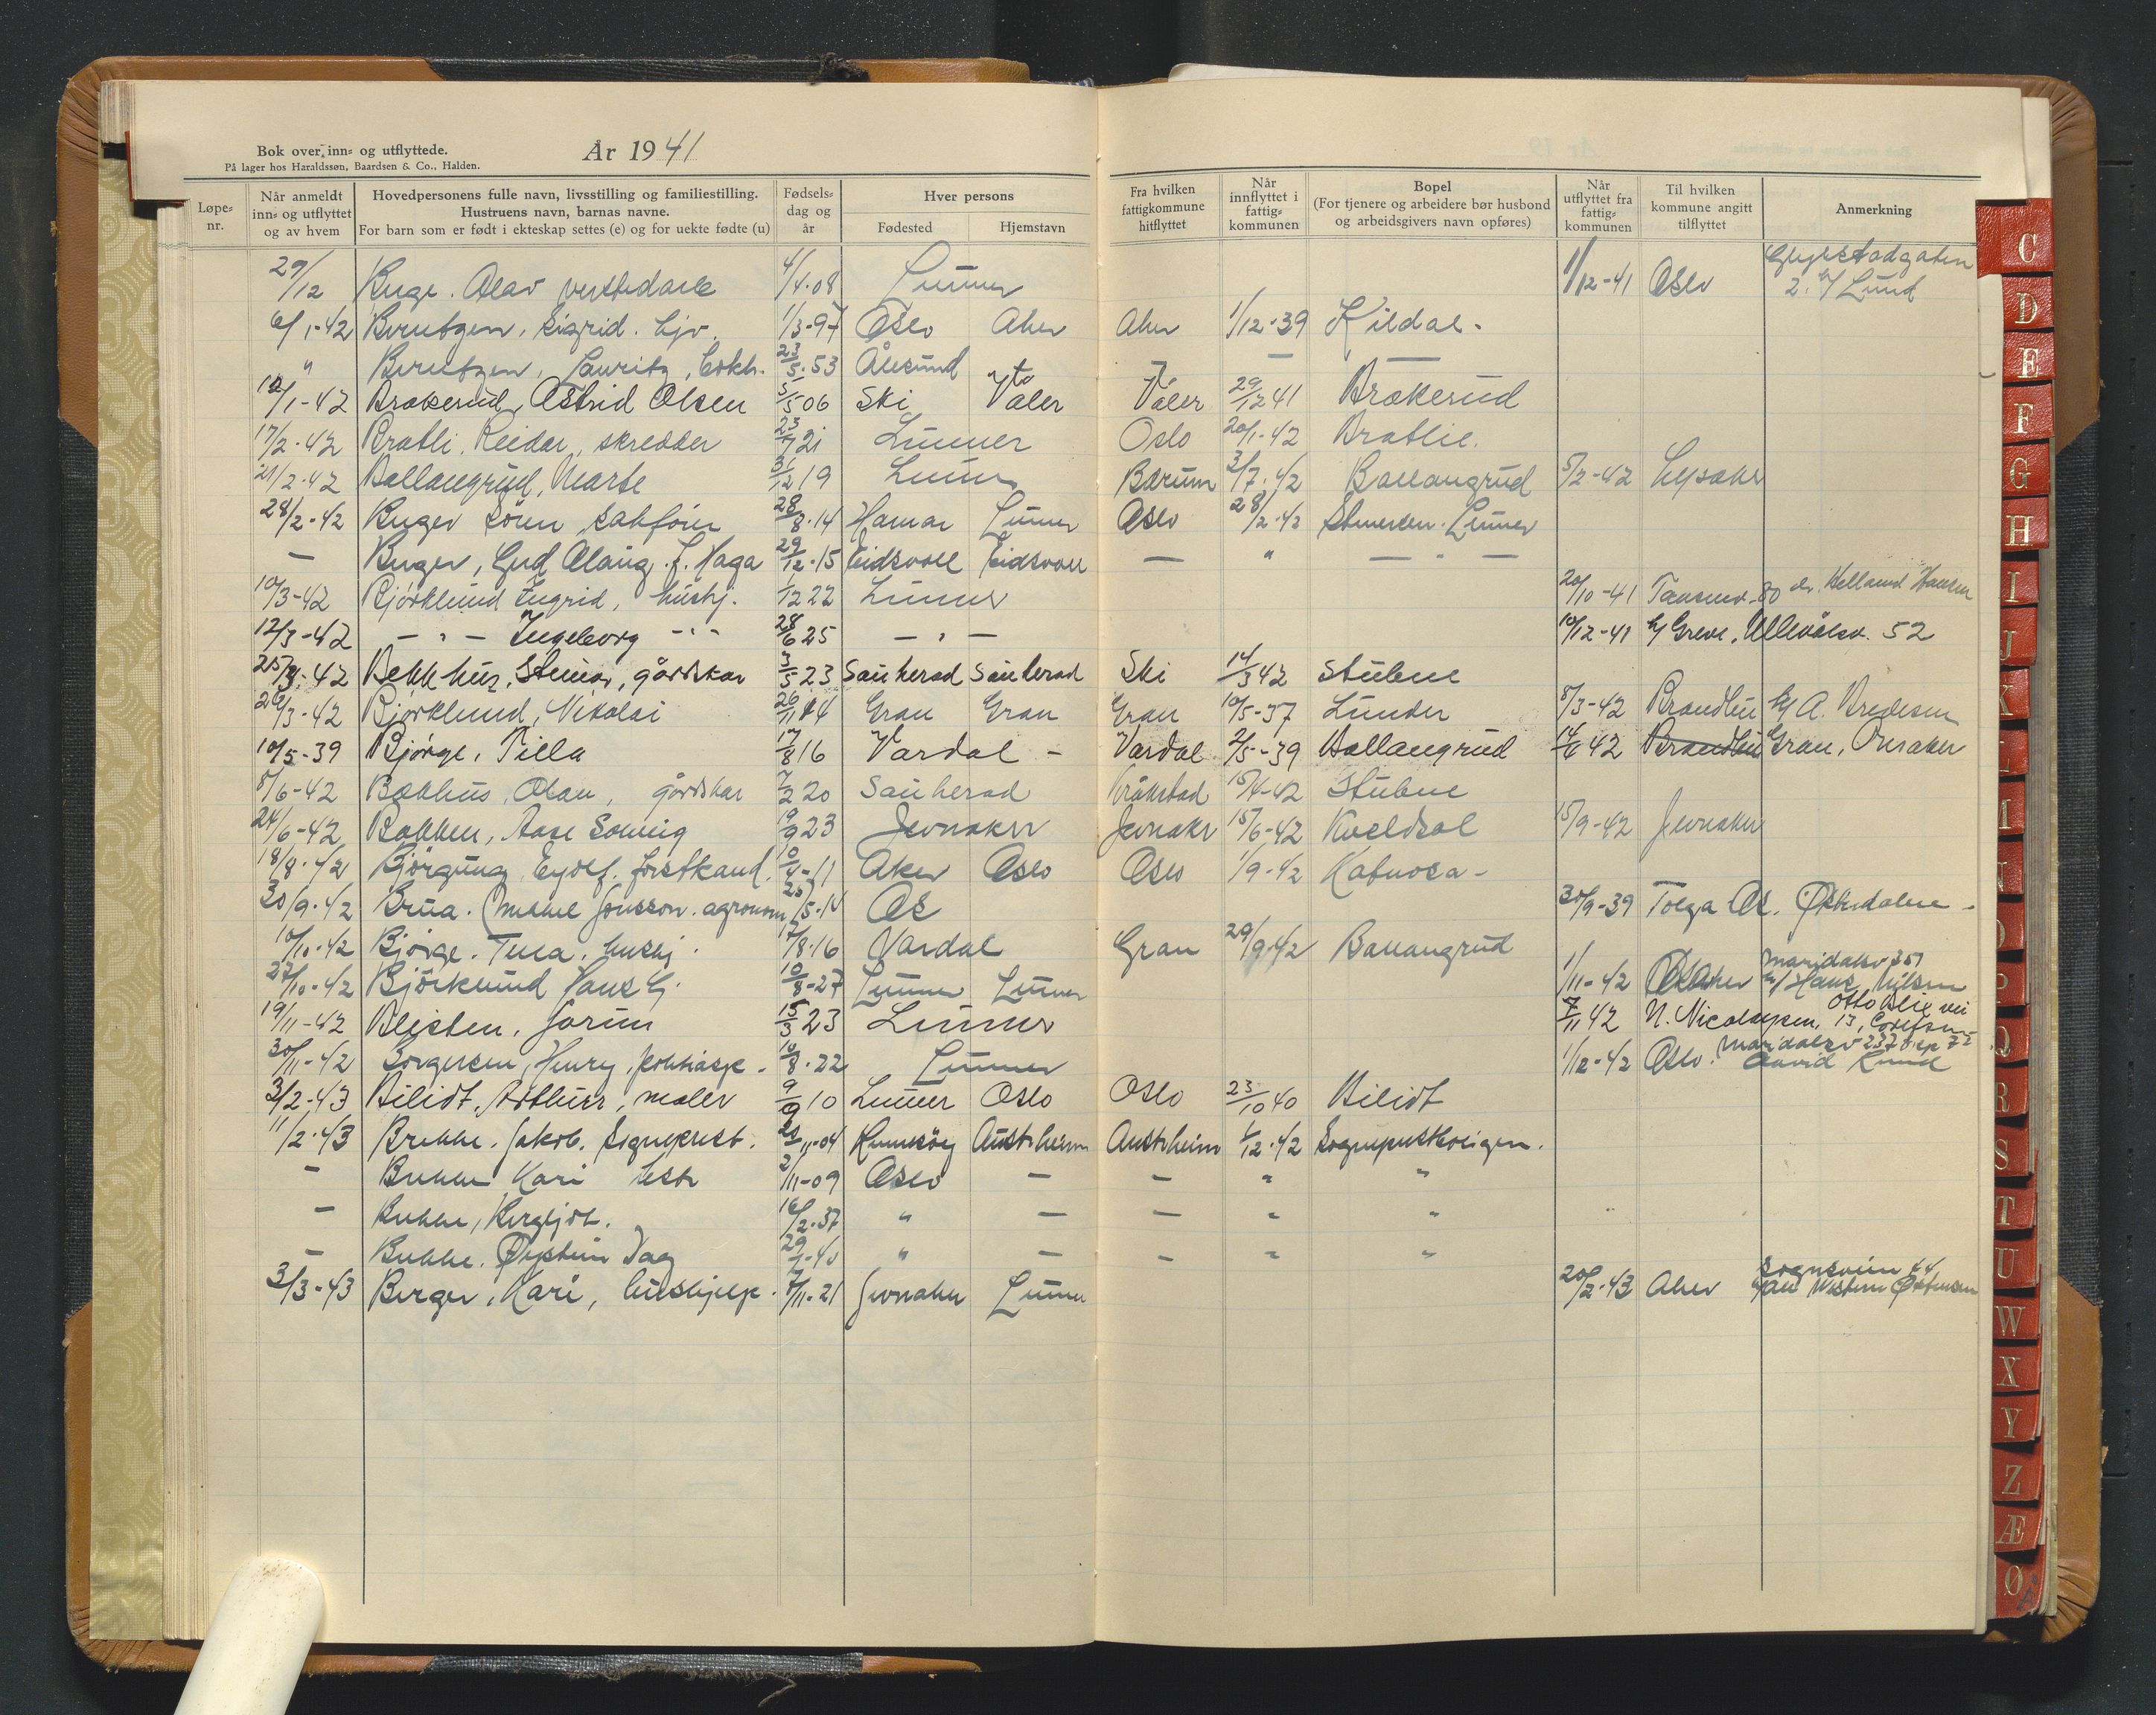 Bok over inn- og utflyttede.
På lager hos Haraldssøn, Baardsen & Co., Halden.
År 1941
Løpe-nr.
Når anmeldt inn- og utflyttet og av hvem
Hovedpersonens fulle navn, livsstilling og familiestilling. Hustruens navn, barnas navne. For barn som er født i ekteskap settes (e) og for uekte fødte (u)
Fødsels-dag og år
Hver persons
Fødested
Hjemstavn
Fra hvilken fattigkommune hitflyttet
Når innflyttet i fattig-kommunen
Bopel (For tjenere og arbeidere bør husbond og arbeidsgivers navn opføres)
Når utflyttet fra fattig-kommunen
Til hvilken kommune angitt tilflyttet
Anmerkning
29/12 Olav 4/4-08 Lunner 1/12-41 Oslo 2. Lund
6/1-42 Berntzen, Sigrid. 1/3-97 Oslo Aker Aker 1/12-39 Kildal -
" Berntzen, Lauritz, 23/5-53 Ålesund —
12/1-42 Brakerud, Astrid Olsen 5/5 06 Ski Våler Våler 29/12 41 Brakerud
17/2-42 Bratli, Reidar, skredder 23/7 21 Lunner Oslo 20/1-42 Bratlie.
21/2-42 Ballangrud, Marte 31/12 19 Lunner Bærum 3/7-42 Ballangrud 5/2-42 Lysaker
28/2-42 28/8-14 Hamar Lunner Oslo 28/2-42 Lunner
— f. Haga 29/12-15 Eidsvoll Eidsvoll — " — " —
10/3-42 Bjørklund Ingrid, hushj. 1/12 22 Lunner 20/10-41 80 Helland Hansen
12/3-42 — " — Ingeborg — " — 28/6 25 — " — 10/12-41 h/ Greve, Ullevålsv. 52
25/3-42 Bekkhus, Steinar, gårdskar 3/5 23 Sauherad Sauherad Ski 14/3 42 Stubne
26/3-42 Bjørklund, Nikolai 26/11 Gran Gran Gran 10/5-37 Lunder 8/3-42 Brandbu h/ A. Bredesen
10/5-39 Bjørge, Tilla 17/8 16 Vardal - Vardal 2/5-39 Ballangrud 14/6 42 Brandbu Gran,
8/6-42 Bækhus, Olav, gårdskar 7/2 20 Sauherad Kråkstad 15/4-42 Stubne
24/6-42 Bakken, Aase Solveig 19/9 23 Jevnaker Jevnaker 15/6-42 Kveldsol 15/9-42 Jevnaker
18/8-42 Eyolf. forstkand. 10/4-11 Aker Oslo Oslo 1/9-42 Katnosa -
30/9-42 Brua. Jonsson. agronom 20/5-14 Os 30/9-39 Tolga Os. Østerdalen -
10/10-42 Bjørge. Tilla. hushj. 17/8-16 Vardal Gran 29/9-42 Ballangrud
27/10-42 Bjørklund Hans G. 10/8-27 Lunner Lunner 1/11-42 Aker Maridalsv 351 h/ Hans Nilsen
19/11-42 Blesten, Jorun 15/3 23 Lunner 7/11 42 N. Nicolaysen, 13, Otto Blix vei
30/11-42 Borgersen, Henry, 10/8-22 Lunner 1/12-42 Oslo. Maridalsv 237
3/2-43 Bilidt, Arthur, maler 9/9 10 Lunner Oslo Oslo 23/10 40 Bilidt
11/2-43 Brekke. Jakob. Sogneprest. 20/11-04 Austrheim Austrheim 1/12-42 Sogneprestboligen.
— Brekke Kari 2/11-09 Oslo — — " "
— Brekke, Bergljot. 16/2-37 " — — " "
— Brekke. Øystein Dag 29/1-40 " — — " "
3/3-43 Berger, Kari, hushjelp. 7/11-21 Jevnaker Lunner 20/2-43 Aker Sognsveien
C
D
E
F
G
H
I
J
K
L
M
N
O
P
Q
R
S
T
U
W
X
Y
Z
Æ
Ø
Å